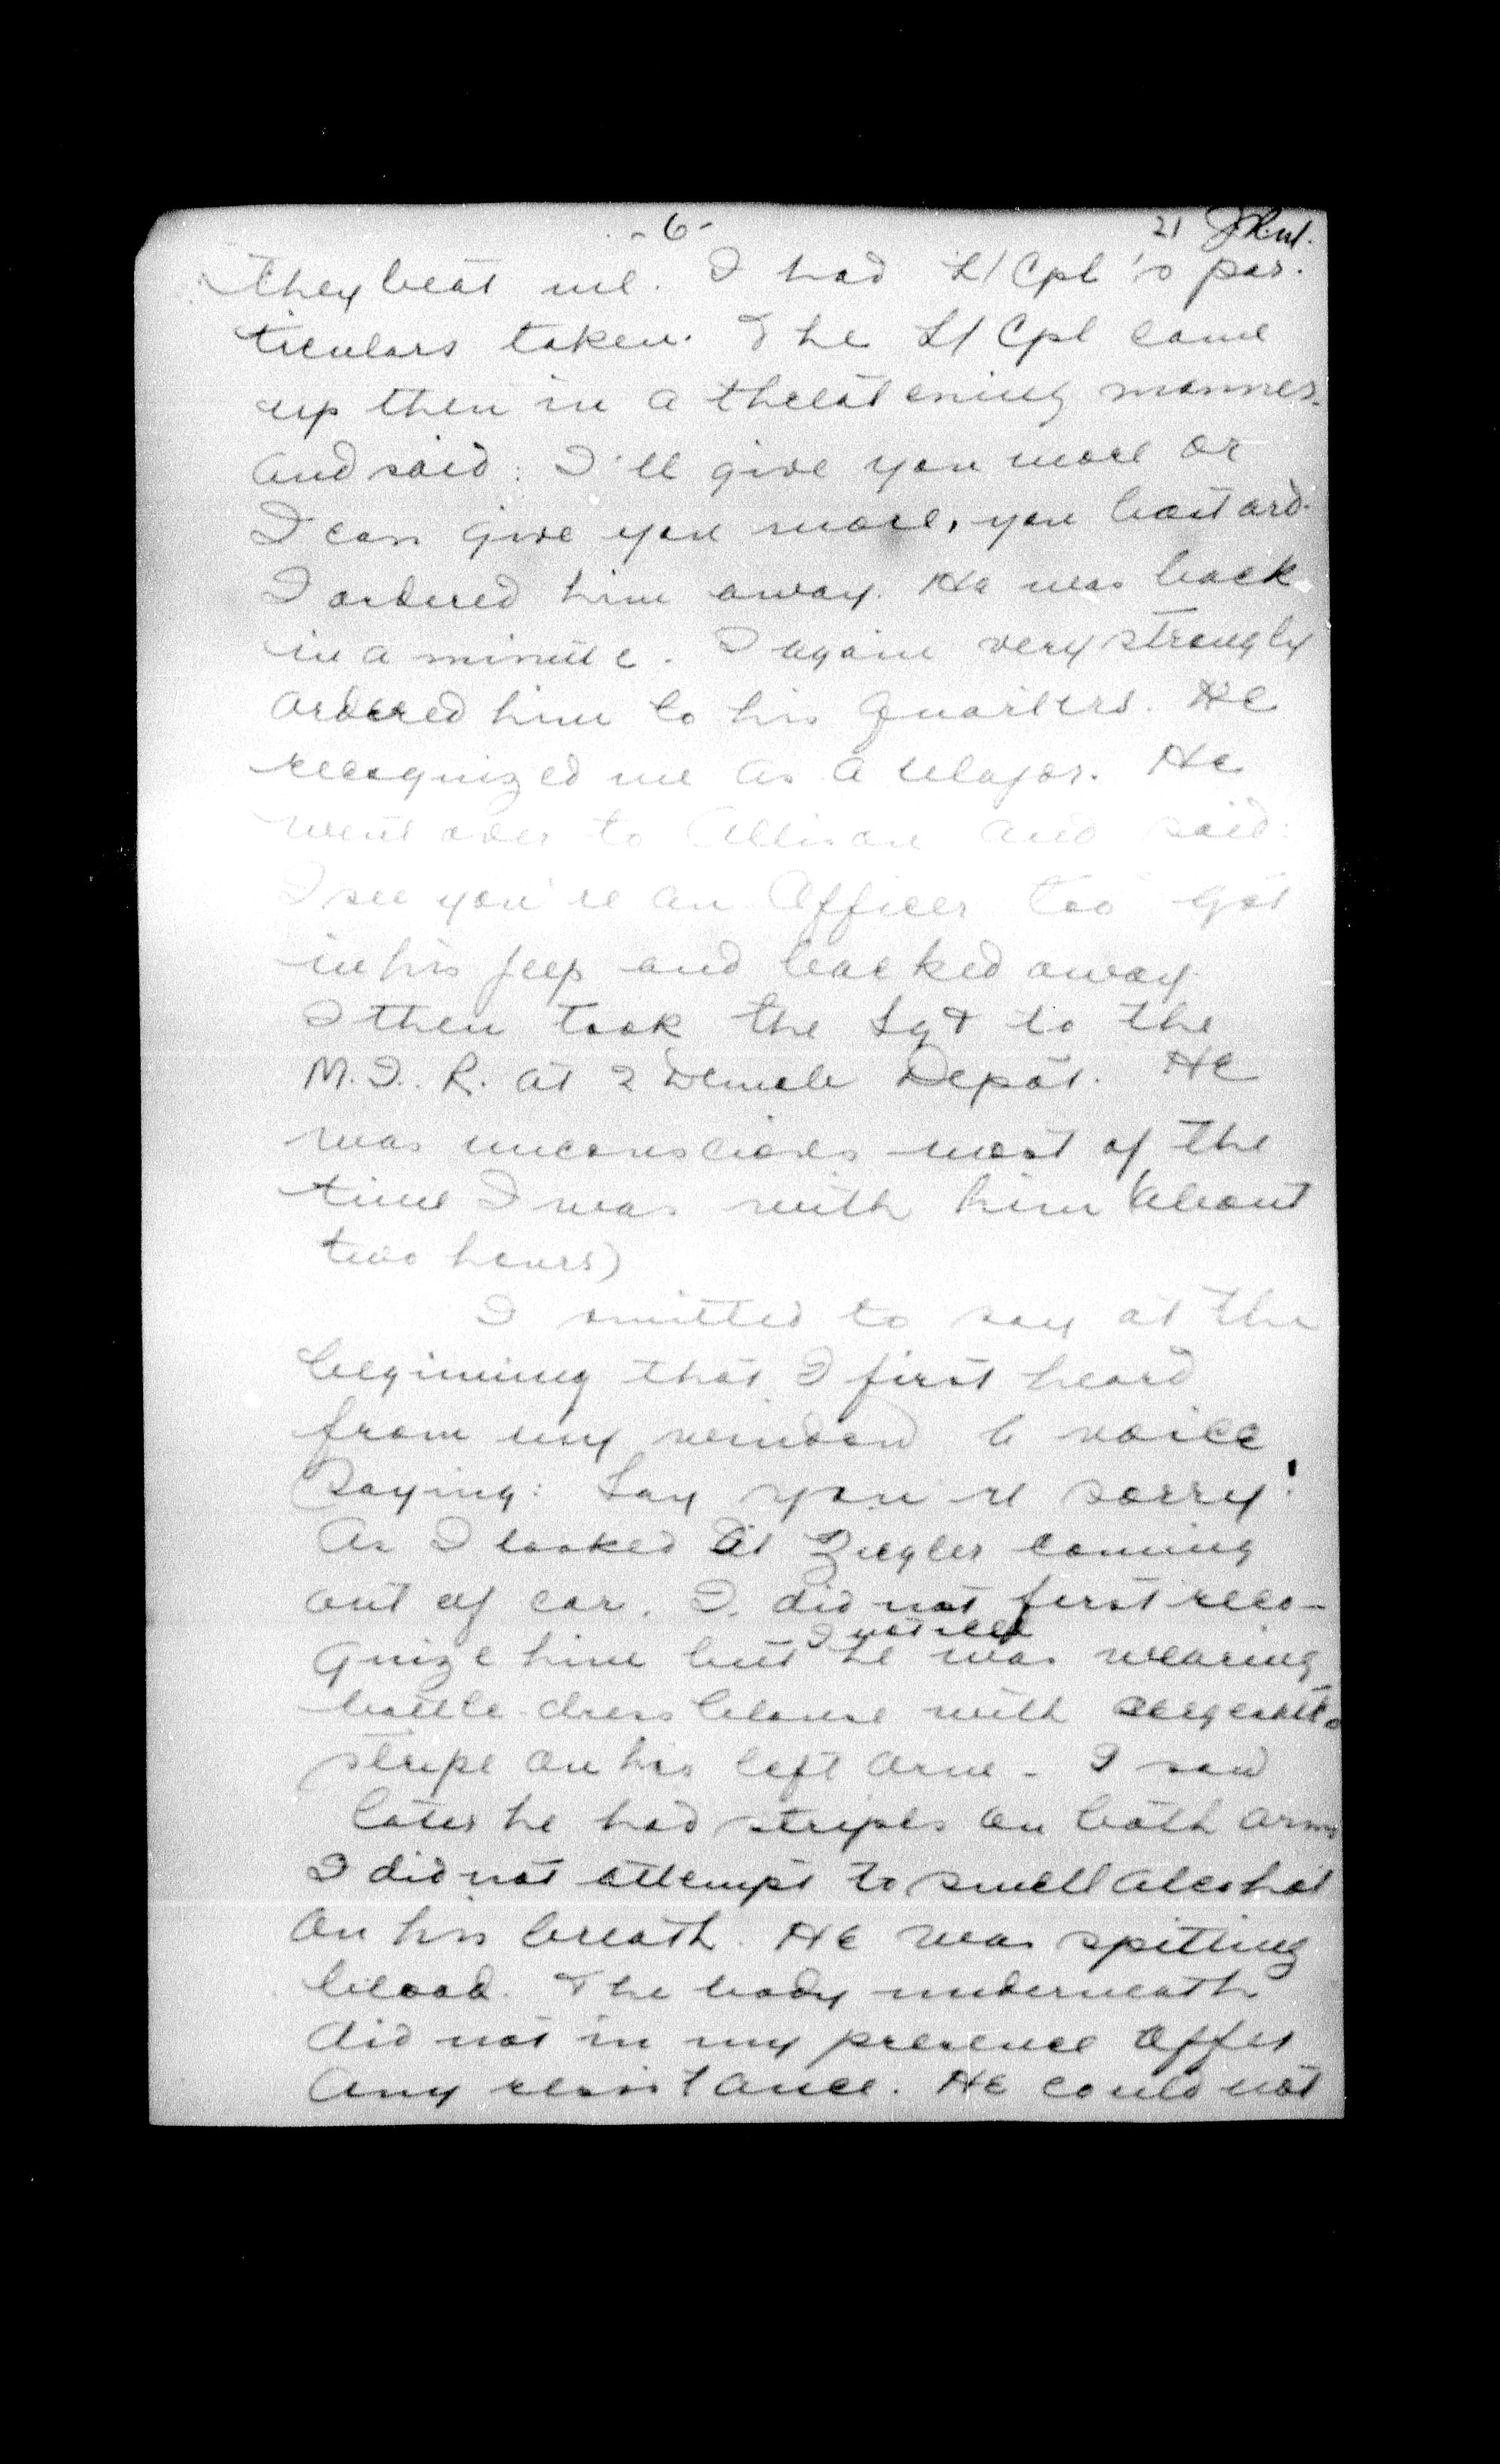 - 6 -
21
they beat me. I had L/Cpl's par-
ticulars taken. The L/Cpl came
up then in a threatening manner
and said: I'll give you more or
I can give you more, you bastard.
I ordered him away. He was back
in a minute. I again very strongly
ordered him to his quarters. He
recognized me as a Major. He
went over to Allison and said:
I see you're an Officer too got
in his jeep and backed away
I then took the Sgt to the
M.I.R. at 2 Demob Depot. He
was unconscious most of the
time I was with him (about
two hours)
I omitted to say at the
beginning that I first heard
from my window a voice
saying: Say you're sorry!
As I looked at Ziegler coming
out of car. I did not first reco-
I noticed
gnize him but he was wearing
battle-dress blouse with sergeant's
stripe on his left arm - I saw
later he had stripes on both arms
I did not attempt to smell alcohol
on his breath. He was spitting
blood. The body underneath
did not in my presence offer
any resistance. He could not